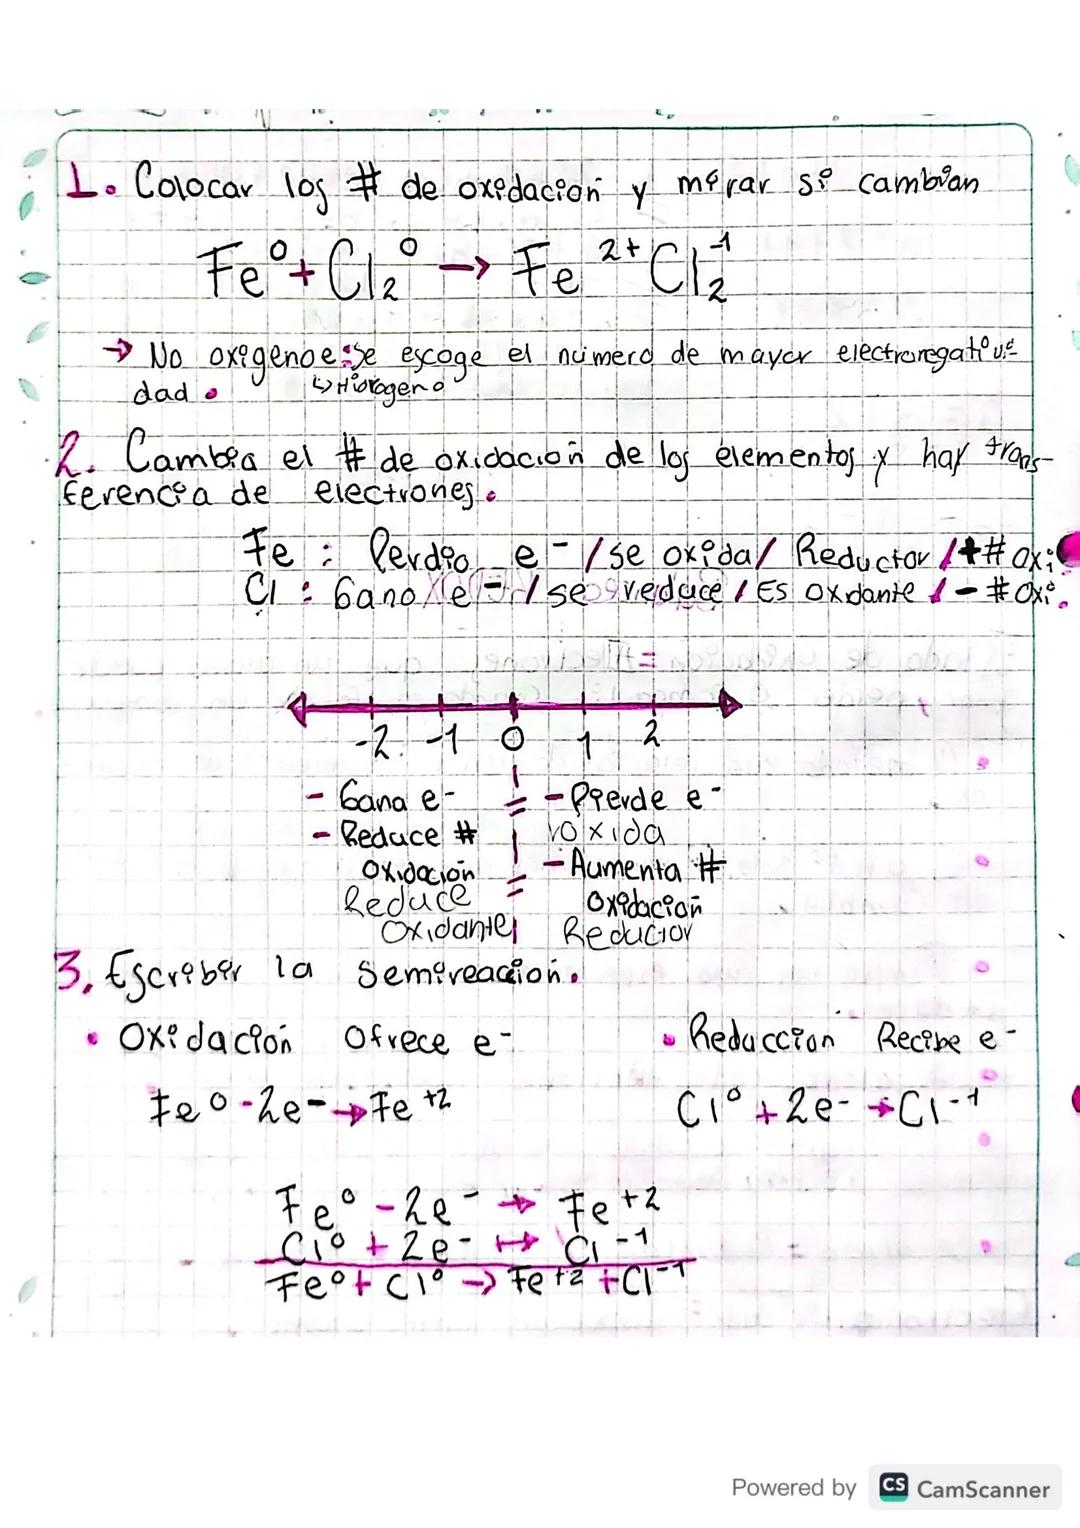 1. Colocar los # de oxidación y mirar si cambian
Fe⁰ + Cl₂⁰ → Fe²⁺ Cl₂⁻¹
→ No oxigeno e se escoge el número de mayor electronegativi-
↳ Hidrogeno
dad.
2. Cambia el # de oxidación de los elementos y hay trans-
ferencia de electrones.
Fe : Perdio e⁻ / se oxida / Reductor / + # oxi.
Cl : Gano e⁻ / se reduce / Es oxidante / - # oxi.
-2 -1 0 1 2
- Gana e- - Pierde e-
- Reduce # oxida
Oxidación - Aumenta #
Reduce Oxidación
Oxidante Reductor
3. Escribir la semireacción.
• Oxidación Ofrece e- • Reducción Recibe e-
Fe⁰ - 2e- → Fe⁺² Cl⁰ + 2e- → Cl⁻¹
Fe⁰ - 2e⁻ → Fe⁺²
Cl⁰ + 2e- → Cl⁻¹
Fe⁰ + Cl⁰ → Fe⁺² + Cl⁻¹
Powered by CS CamScanner